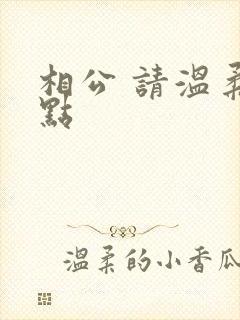 相公 請溫柔
點
溫柔的小香瓜